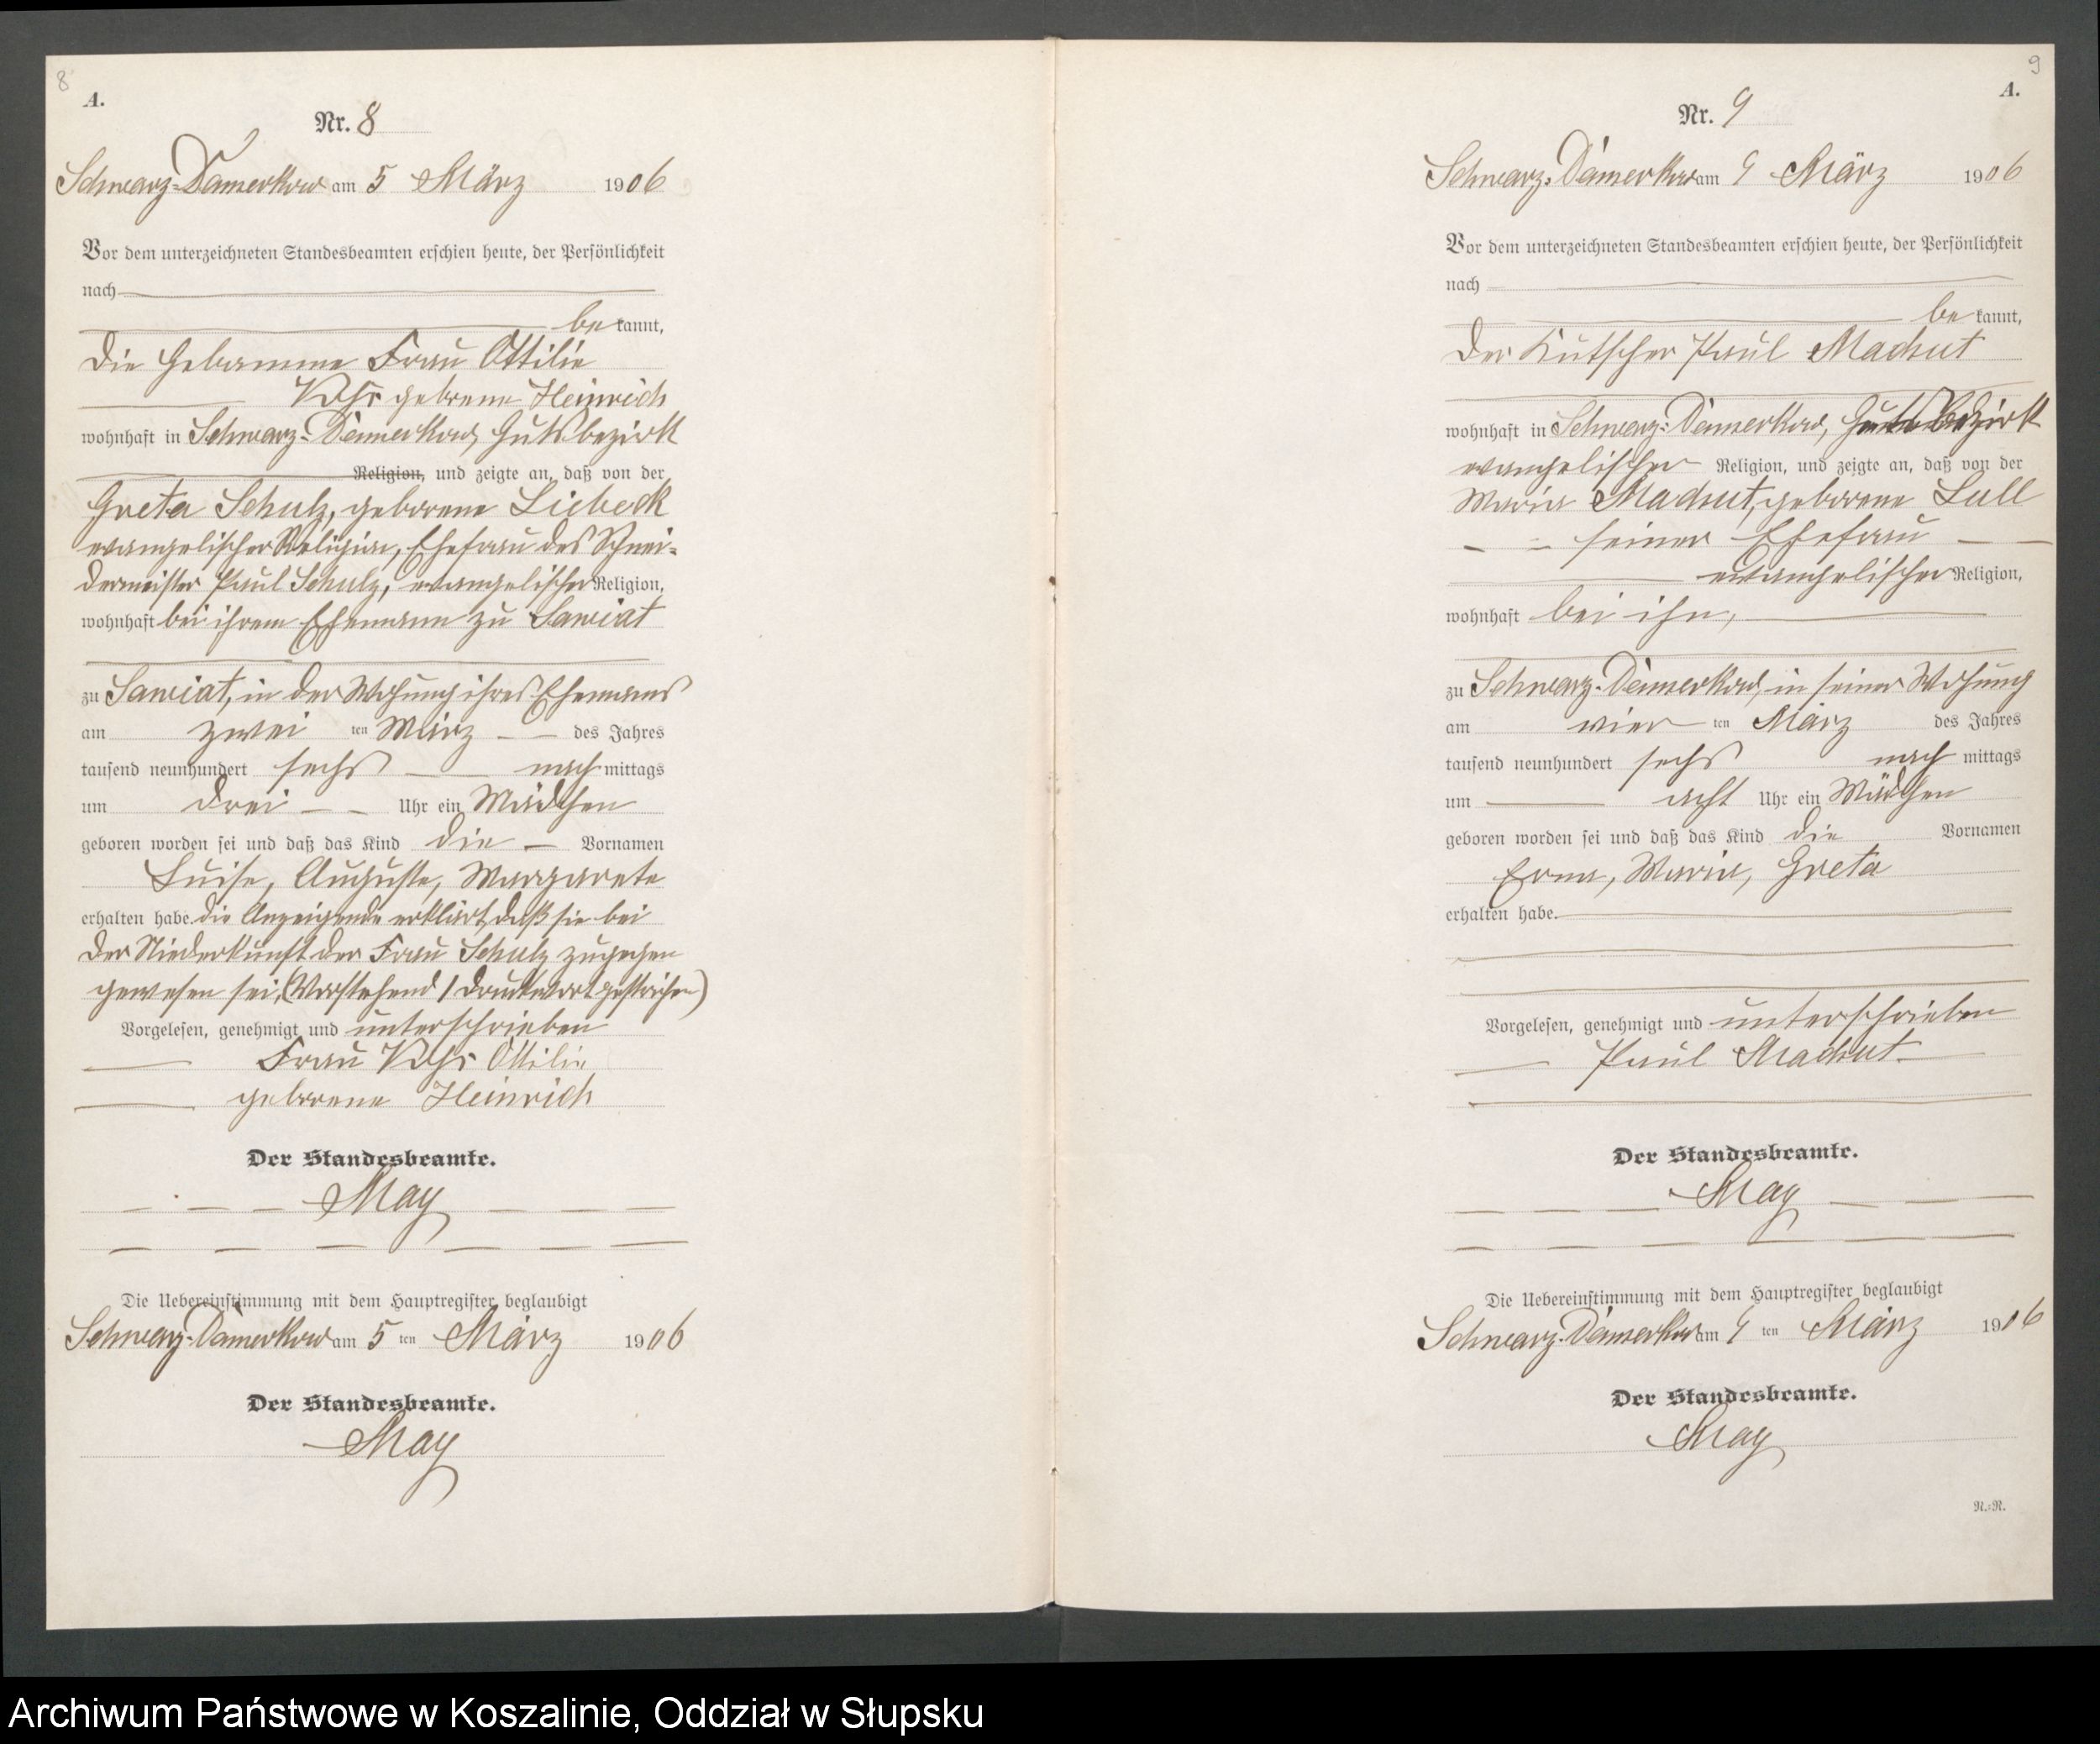 8
A.
Nr. 8
Schwarz-Damerkow am 5 März 1906
Vor dem unterzeichneten Standesbeamten erschien heute, der Persönlichkeit
nach
be kannt,
die Hebamme Frau Ottilie
geborene Heinrich
wohnhaft in Schwarz-Damerkow, Gutsbezirk
Religion, und zeigte an, daß von der
Greta Schulz, geborene Liebeck
evangelischer Religion, Ehefrau des Schnei-
dermeister Paul Schulz, evangelischer Religion,
wohnhaft bei ihrem Ehemann zu Sawiat
zu Sawiat, in der Wohnung ihres Ehemanns
am zwei ten März des Jahres
tausend neunhundert sechs nach mittags
um drei Uhr ein Mädchen
geboren worden sei und daß das Kind die Vornamen
Luise, Auguste, Margarete
erhalten habe. die Anzeigende erklärt, daß sie bei
der Niederkunft der Frau Schulz zugegen
gewesen sei, (Vorstehend 1 Druckwort gestrichen)
Vorgelesen, genehmigt und unterschrieben
Frau Ottilie
geborene Heinrich
Der Standesbeamte.
May
Die Uebereinstimmung mit dem Hauptregister beglaubigt
Schwarz-Damerkow am 5 ten März 1906
Der Standesbeamte.
May
9
A.
Nr. 9
Schwarz-Damerkow am 9 März 1906
Vor dem unterzeichneten Standesbeamten erschien heute, der Persönlichkeit
nach
be kannt,
der Kutscher Paul Machut
wohnhaft in Schwarz-Damerkow, Gutsbezirk
evangelischer Religion, und zeigte an, daß von der
Maria Machut, geborene Lull
seiner Ehefrau
evangelischer Religion,
wohnhaft bei ihm,
zu Schwarz-Damerkow, in seiner Wohnung
am vier ten März des Jahres
tausend neunhundert sechs nach mittags
um acht Uhr ein Mädchen
geboren worden sei und daß das Kind die Vornamen
Erna, Maria, Greta
erhalten habe.
Vorgelesen, genehmigt und unterschrieben
Paul Machut
Der Standesbeamte.
May
Die Uebereinstimmung mit dem Hauptregister beglaubigt
Schwarz-Damerkow am 9 ten März 1906
Der Standesbeamte.
May
N.=R.
Archiwum Państwowe w Koszalinie, Oddział w Słupsku